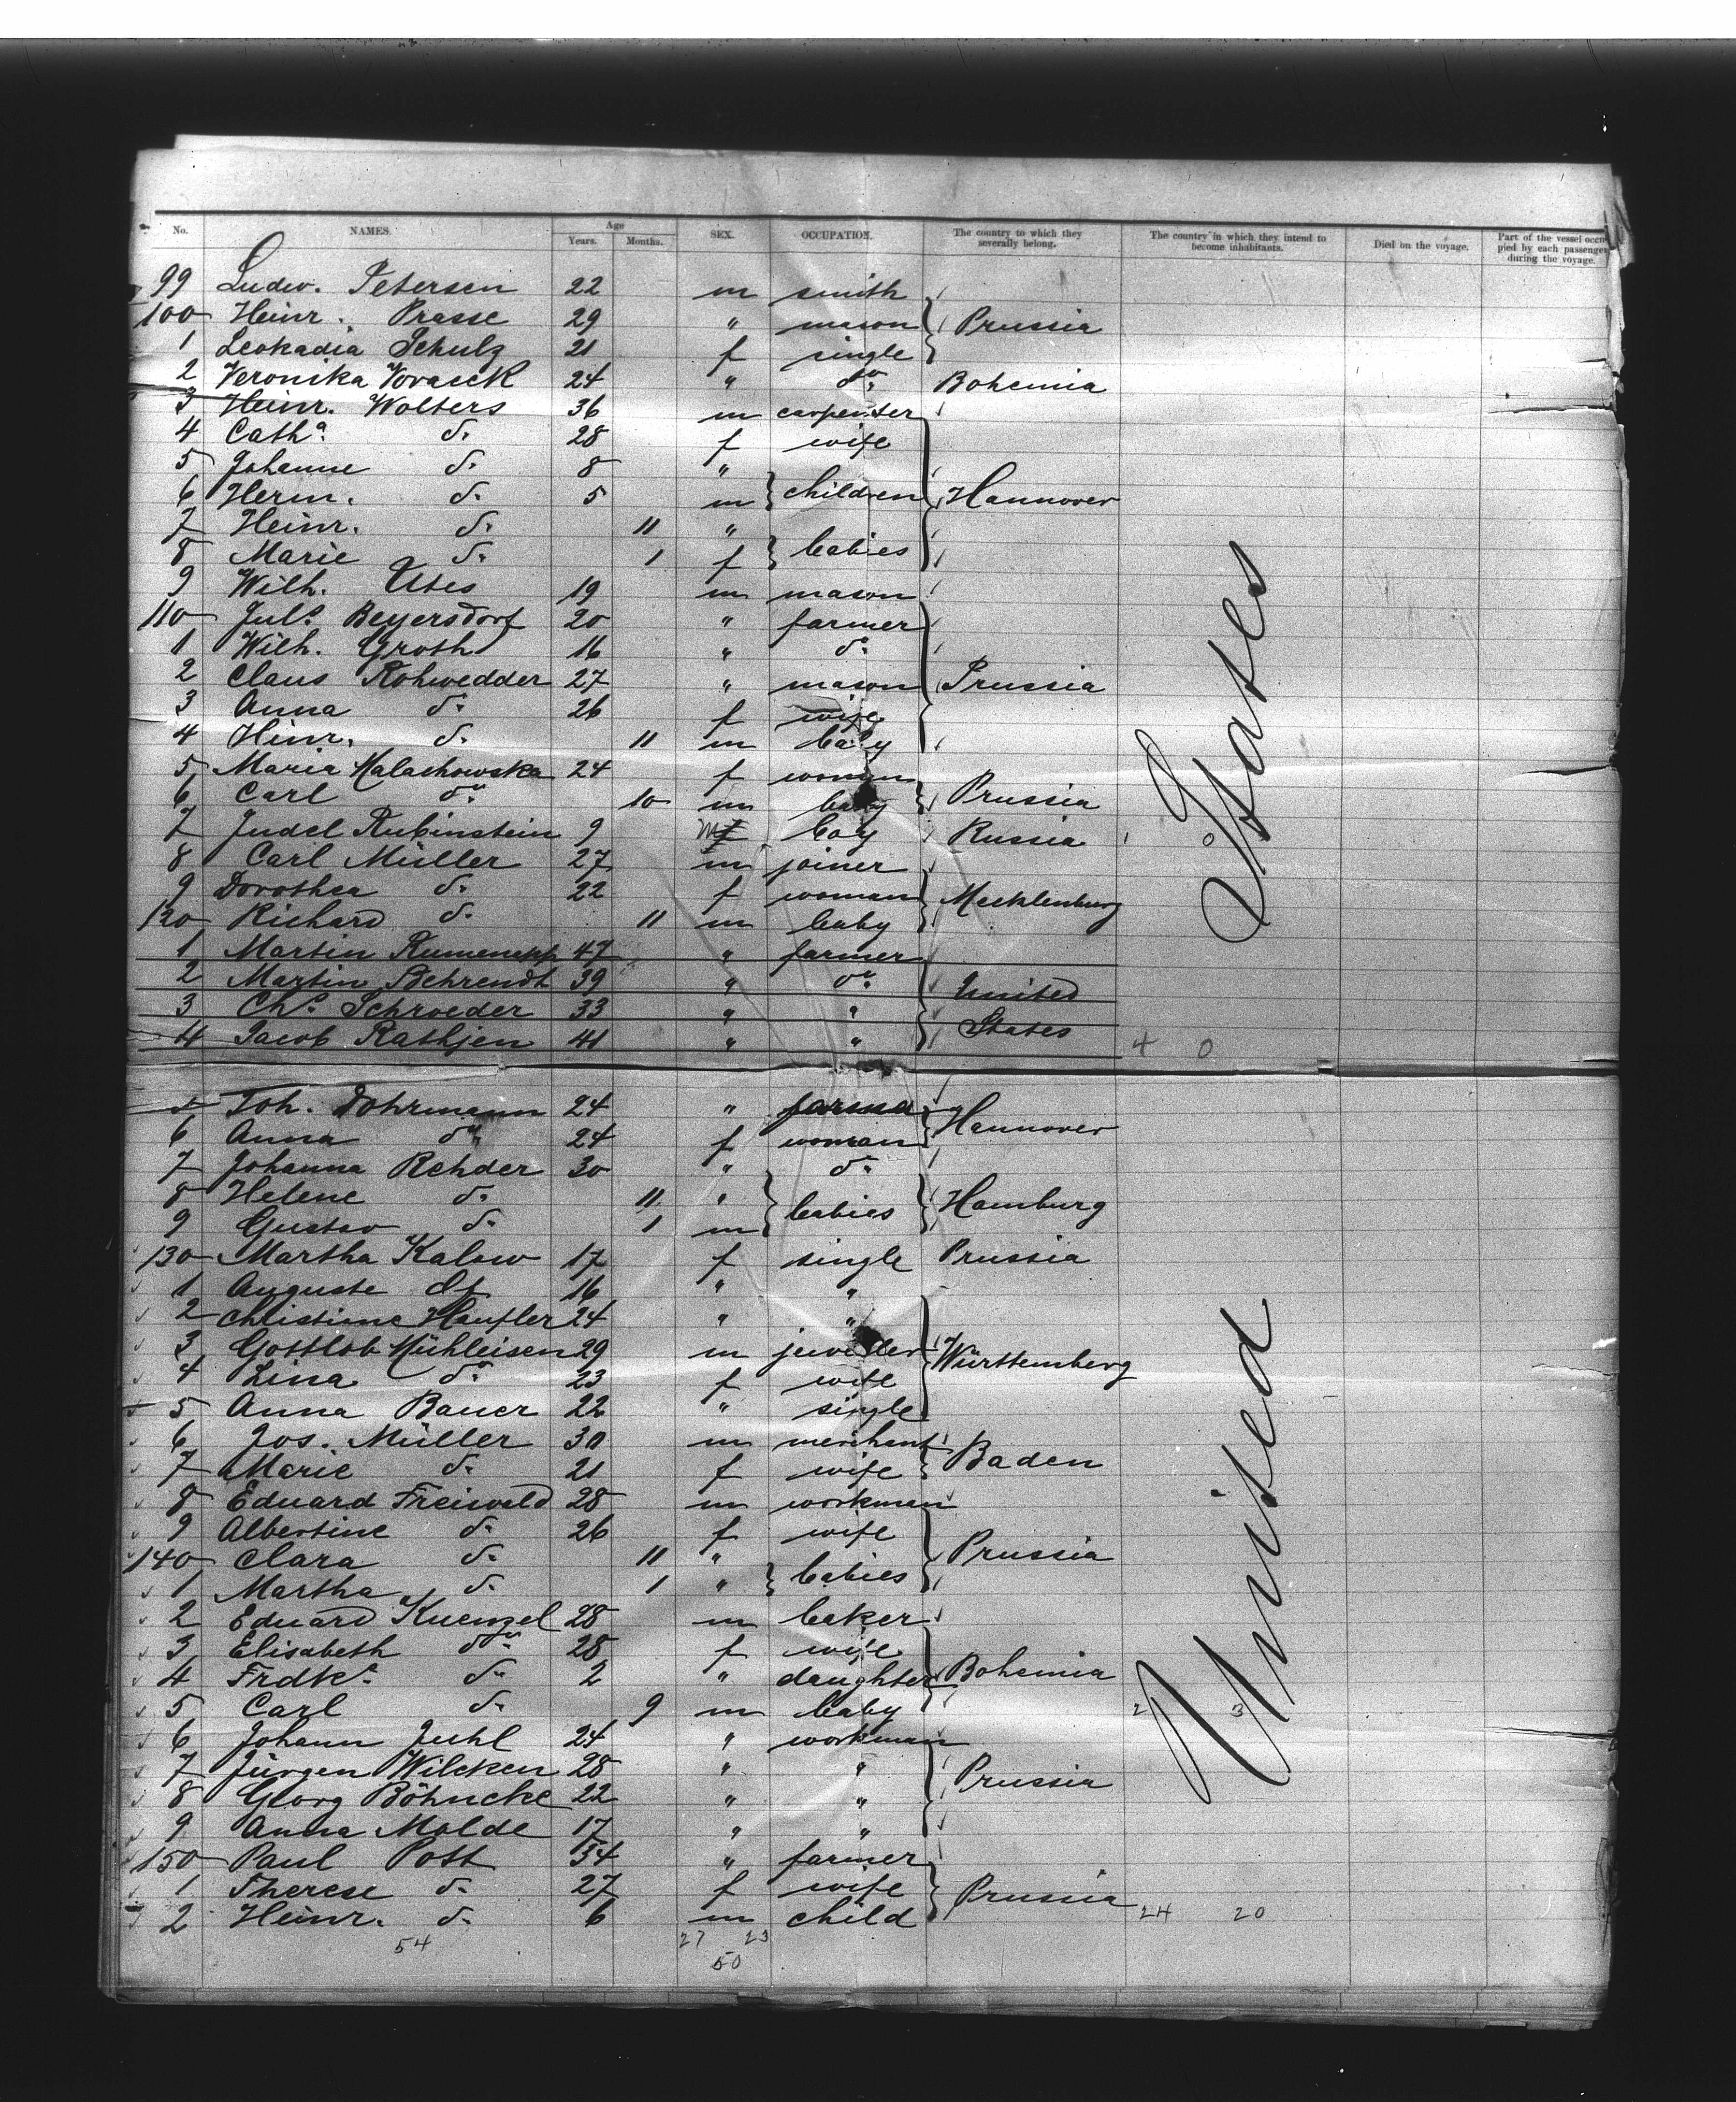 No. NAMES. Age Years. Months. SEX. OCCUPATION. The country to which they severally belong. The country in which they intend to become inhabitants. Died on the voyage. Part of the vessel occupied by each passenger during the voyage.
99 Ludw. Petersen 22 m smith
100 Heinr. Prasse 29 " mason Prussia
1 Leokadia Schulz 21 f single
2 Veronika 24 " do. Bohemia
3 Heinr. Wolters 36 m carpenter
4 Cath.a d. 28 f wife
5 Johanne d. 8 "
6 Herm. d. 5 m children Hannover
7 Heinr. d. 11 "
8 Marie d. 1 f babies
9 Wilh. Utes 19 m mason
110 Jul.s Beyersdorf 20 " farmer
1 Wilh. Groth 16 " do.
2 Claus Rohwedder 27 " mason Prussia
3 Anna do. 26 f wife
4 Hinr. d. 11 m baby
5 Maria Malachowska 24 f woman
6 Carl do. 10 m baby Prussia
7 Judel Rubinstein 9 m boy Russia
8 Carl Müller 27 m joiner
9 Dorothea d. 22 f woman Mecklenburg
120 Richard d. 11 m baby
1 Martin 47 " farmer
2 Martin Behrendt 39 " do. United
3 Ch.s Schroeder 33 " " States
4 Jacob Rathjen 41 " " 4 0
5 Joh. Dohrmann 24 " farmer
6 Anna do. 24 f woman Hannover
7 Johanna Rehder 30 " do.
8 Helene d. 11 "
9 Gustav d. 1 m babies Hamburg
130 Martha Kalow 17 f single Prussia
1 Auguste do 16 " "
2 Christine Haufler 24 " "
3 Gottlob Mühleisen 29 m jeweller Württemberg
4 Lina do. 23 f wife
5 Anna Bauer 22 " single
6 Jos. Müller 30 m merchant
7 Marie d. 21 f wife Baden
8 Eduard Freiwald 28 m workman
9 Albertine d. 26 f wife
140 Clara d. 11 " Prussia
1 Martha d. 1 " babies
2 Eduard Kuenzel 28 m baker
3 Elisabeth do. 28 f wife
4 Frdk.e do. 2 " daughter Bohemia
5 Carl d. 9 m baby 2 3
6 Johann Juhl 24 " workman
7 Jürgen Wilcken 28 " " Prussia
8 Georg Böhncke 22 " "
9 Anna Molde 17 " "
150 Paul Pott 34 " farmer
1 Therese d. 27 f wife Prussia
2 Heinr. d. 6 m child 24 20
54 27 23
50
United States